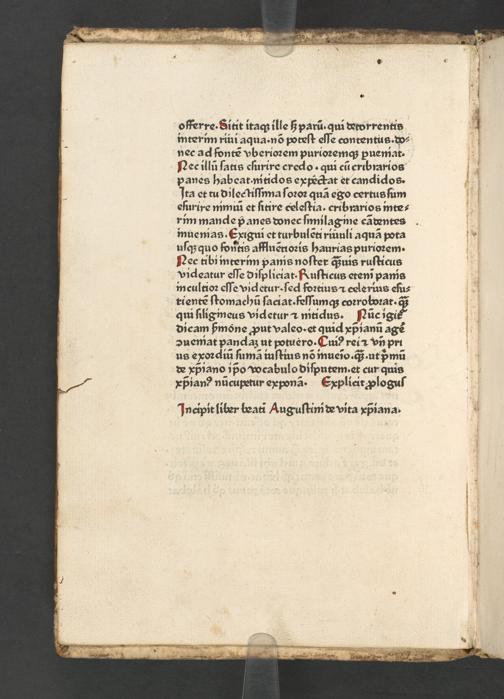 offerre. Sitit itaqꝫ ille hꝫ parū. qui de torrentis
interim riui aqua. nō potest esse contentus. do⸗
nec ad fontē vberiorem purioremqꝫ ꝓueniat.
Nec illū satis esurire credo. qui cū cribrarios
panes habeat. nitidos expectat et candidos.
Ita et tu dilectissima soror quā ego certus sum
esurire nimiū et sitire celestia. cribrarios inte⸗
rim mande panes donec similagine cādentes
inuenias. Exigui et turbulēti riuuli aquā pota
usqꝫ quo fontis affluentioris haurias puriorem.
Nec tibi interim panis noster qͣuis rusticus
videatur esse displiciat. Rusticus etenī panis
incultior esse videtur. sed fortius ⁊ celerius esu⸗
rientē stomachū saciat. fessumqꝫ corroborat. qͣꝫ
qui siligineus videtur ⁊ nitidus. Nūc igiť
dicam sermōne ꝓut valeo. et quid xp̄ianū agē
ꝯueniat pandā. ut potuero. Cuiꝰ rei ⁊ vn̄ pri
us exordiū sumā iustius nō inuēio. qͣꝫ. ut pͥmū
de xp̄iano ip̄o vocabulo disputem. et cur quis
xp̄ianꝰ nūcupetur exponā. Explicit ꝓlogus
Incipit liber beati Augustini de vita xp̄iana.